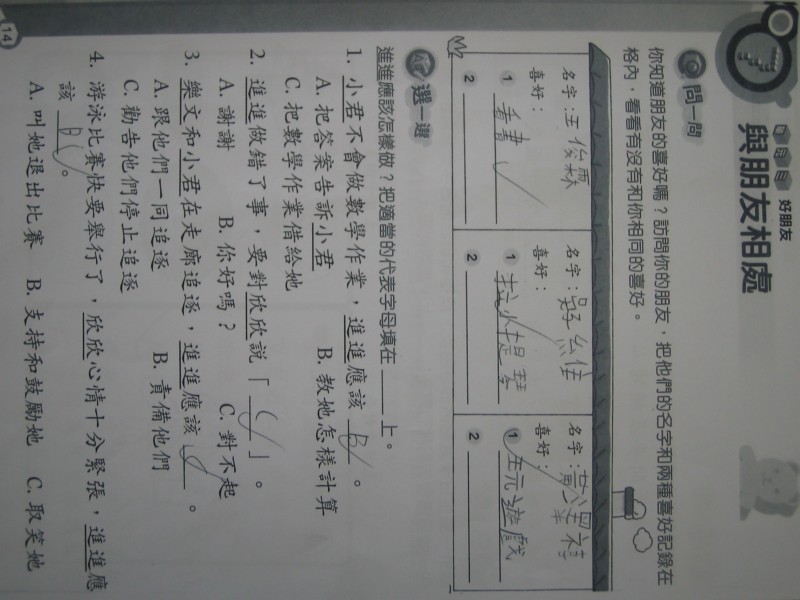 7
好朋友
與朋友相處
問一問
你知道朋友的喜好嗎？訪問你的朋友，把他們的名字和兩種喜好記錄在
格內，看看有沒有和你相同的喜好。
名字：王俊霖
喜好：
1 看書
2
名字：
喜好：
1 拉小提琴
2
名字：黃
喜好：
1 玩遊戲
2
選一選
進進應該怎樣做？把適當的代表字母填在____上。
1. 小君不會做數學作業，進進應該 B 。
A. 把答案告訴小君 B. 教她怎樣計算
C. 把數學作業借給她
2. 進進做錯了事，要對欣欣說「 C 」。
A. 謝謝 B. 你好嗎？ C. 對不起
3. 樂文和小君在走廊追逐，進進應該 C 。
A. 跟他們一同追逐 B. 責備他們
C. 勸告他們停止追逐
4. 游泳比賽快要舉行了，欣欣心情十分緊張，進進應
該 B 。
A. 叫她退出比賽 B. 支持和鼓勵她 C. 取笑她
14